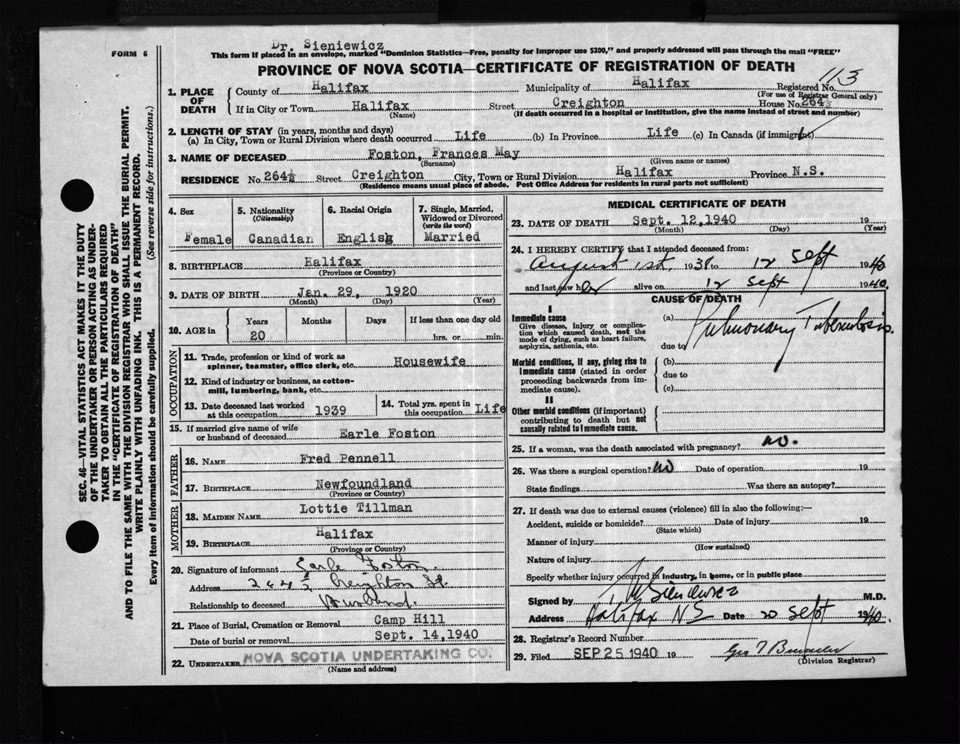 Dr. Sieniewicz
FORM 6
This form if placed in an envelope, marked "Dominion Statistics—Free, penalty for improper use $300," and properly addressed will pass through the mail "FREE"
PROVINCE OF NOVA SCOTIA—CERTIFICATE OF REGISTRATION OF DEATH
113
SEC. 46—VITAL STATISTICS ACT MAKES IT THE DUTY
OF THE UNDERTAKER OR PERSON ACTING AS UNDER-
TAKER TO OBTAIN ALL THE PARTICULARS REQUIRED
IN THE "CERTIFICATE OF REGISTRATION OF DEATH"
AND TO FILE THE SAME WITH THE DIVISION REGISTRAR WHO SHALL ISSUE THE BURIAL PERMIT.
WRITE PLAINLY WITH UNFADING INK. THIS IS A PERMANENT RECORD.
Every item of information should be carefully supplied. (See reverse side for instructions.)
1. PLACE OF DEATH
County of Halifax Municipality of Halifax Registered No.
(For use of Registrar General only)
If in City or Town Halifax Street Creighton House No. 264½
(Name) (If death occurred in a hospital or institution, give the name instead of street and number)
2. LENGTH OF STAY (in years, months and days)
(a) In City, Town or Rural Division where death occurred Life (b) In Province Life (c) In Canada (if immigrant)
3. NAME OF DECEASED Foston, Frances May
(Surname) (Given name or names)
RESIDENCE No. 264½ Street Creighton City, Town or Rural Division Halifax Province N.S.
(Residence means usual place of abode. Post Office Address for residents in rural parts not sufficient)
4. Sex Female
5. Nationality (Citizenship) Canadian
6. Racial Origin English
7. Single, Married, Widowed or Divorced (write the word) Married
8. BIRTHPLACE Halifax
(Province or Country)
9. DATE OF BIRTH Jan. 29, 1920
(Month) (Day) (Year)
10. AGE in Years Months Days If less than one day old
20 hrs. or min.
OCCUPATION
11. Trade, profession or kind of work as spinner, teamster, office clerk, etc. Housewife
12. Kind of industry or business, as cotton-mill, lumbering, bank, etc.
13. Date deceased last worked at this occupation 1939
14. Total yrs. spent in this occupation Life
15. If married give name of wife or husband of deceased Earle Foston
FATHER
16. NAME Fred Pennell
17. BIRTHPLACE Newfoundland
(Province or Country)
MOTHER
18. MAIDEN NAME Lottie Tillman
19. BIRTHPLACE Halifax
(Province or Country)
20. Signature of informant Earle Foston
Address 264½ Creighton St.
Relationship to deceased Husband.
21. Place of Burial, Cremation or Removal Camp Hill
Date of burial or removal Sept. 14, 1940
22. UNDERTAKER NOVA SCOTIA UNDERTAKING CO.
(Name and address)
MEDICAL CERTIFICATE OF DEATH
23. DATE OF DEATH Sept. 12, 1940 19
(Month) (Day) (Year)
24. I HEREBY CERTIFY that I attended deceased from:
August 1st, 1938 to 12 Sept 1940
and last saw her alive on 12 Sept 1940.
CAUSE OF DEATH
I
Immediate cause
Give disease, injury or complication which caused death, not the mode of dying, such as heart failure, asphyxia, asthenia, etc.
(a) Pulmonary Tuberculosis.
due to
Morbid conditions, if any, giving rise to immediate cause (stated in order proceeding backwards from immediate cause).
(b)
due to
(c)
II
Other morbid conditions (if important) contributing to death but not causally related to immediate cause.
25. If a woman, was the death associated with pregnancy? no.
26. Was there a surgical operation? no Date of operation 19
State findings Was there an autopsy?
27. If death was due to external causes (violence) fill in also the following:—
Accident, suicide or homicide? Date of injury 19
(State which)
Manner of injury
(How sustained)
Nature of injury
Specify whether injury occurred in industry, in home, or in public place
Signed by T M Sieniewicz M.D.
Address Halifax NS Date 20 Sept 1940.
28. Registrar's Record Number
29. Filed SEP 25 1940 19
(Division Registrar)